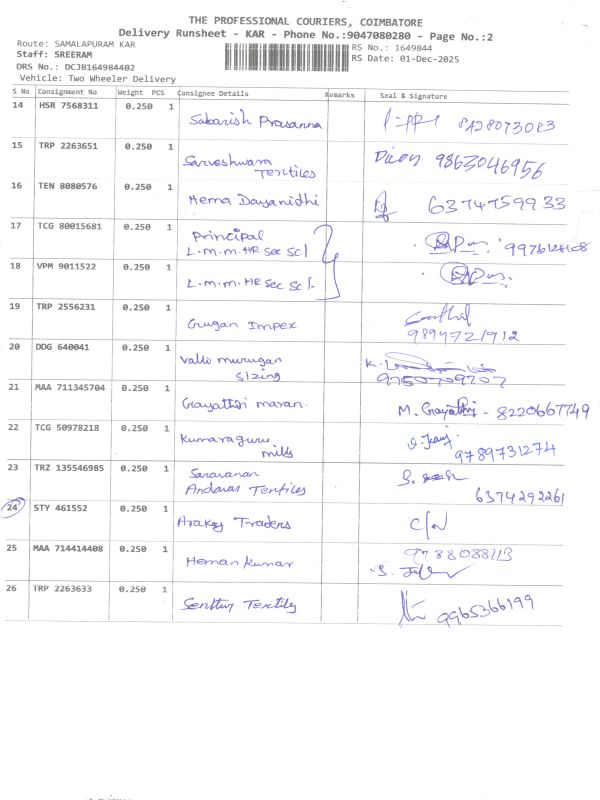 THE PROFESSIONAL COURIERS, COIMBATORE
Delivery Runsheet - KAR - Phone No.:9047080280 - Page No.:2
Route: SAMALAPURAM KAR
Staff: SREERAM
DRS No.: DCJB164984402
Vehicle: Two Wheeler Delivery
RS No.: 1649844
RS Date: 01-Dec-2025
S No Consignment No Weight PCS Consignee Details Remarks Seal & Signature
14 HSR 7568311 0.250 1 Sabarish Prasanna
15 TRP 2263651 0.250 1 Sarveshwara Textiles 9863046956
16 TEN 8080576 0.250 1 Hema Dayanidhi 6374759933
17 TCG 80015681 0.250 1 Principal
L.M.M. HR Sec Scl
18 VPM 9011522 0.250 1 L.M.M. HR Sec Scl.
19 TRP 2556231 0.250 1 Gugan Impex 9894721912
20 DDG 640041 0.250 1 Valli murugan
sizing 9750709207
21 MAA 711345704 0.250 1 Gayathri maran. M. Gayathri - 8220667749
22 TCG 50978218 0.250 1 Kumaraguru
mills 9789731274
23 TRZ 135546985 0.250 1 Saravanan
Andavar Textiles 6374292261
24 STY 461552 0.250 1 Traders C/N
25 MAA 714414408 0.250 1 Heman Kumar 9788088113
26 TRP 2263633 0.250 1 Senthur Textiles 9965366199